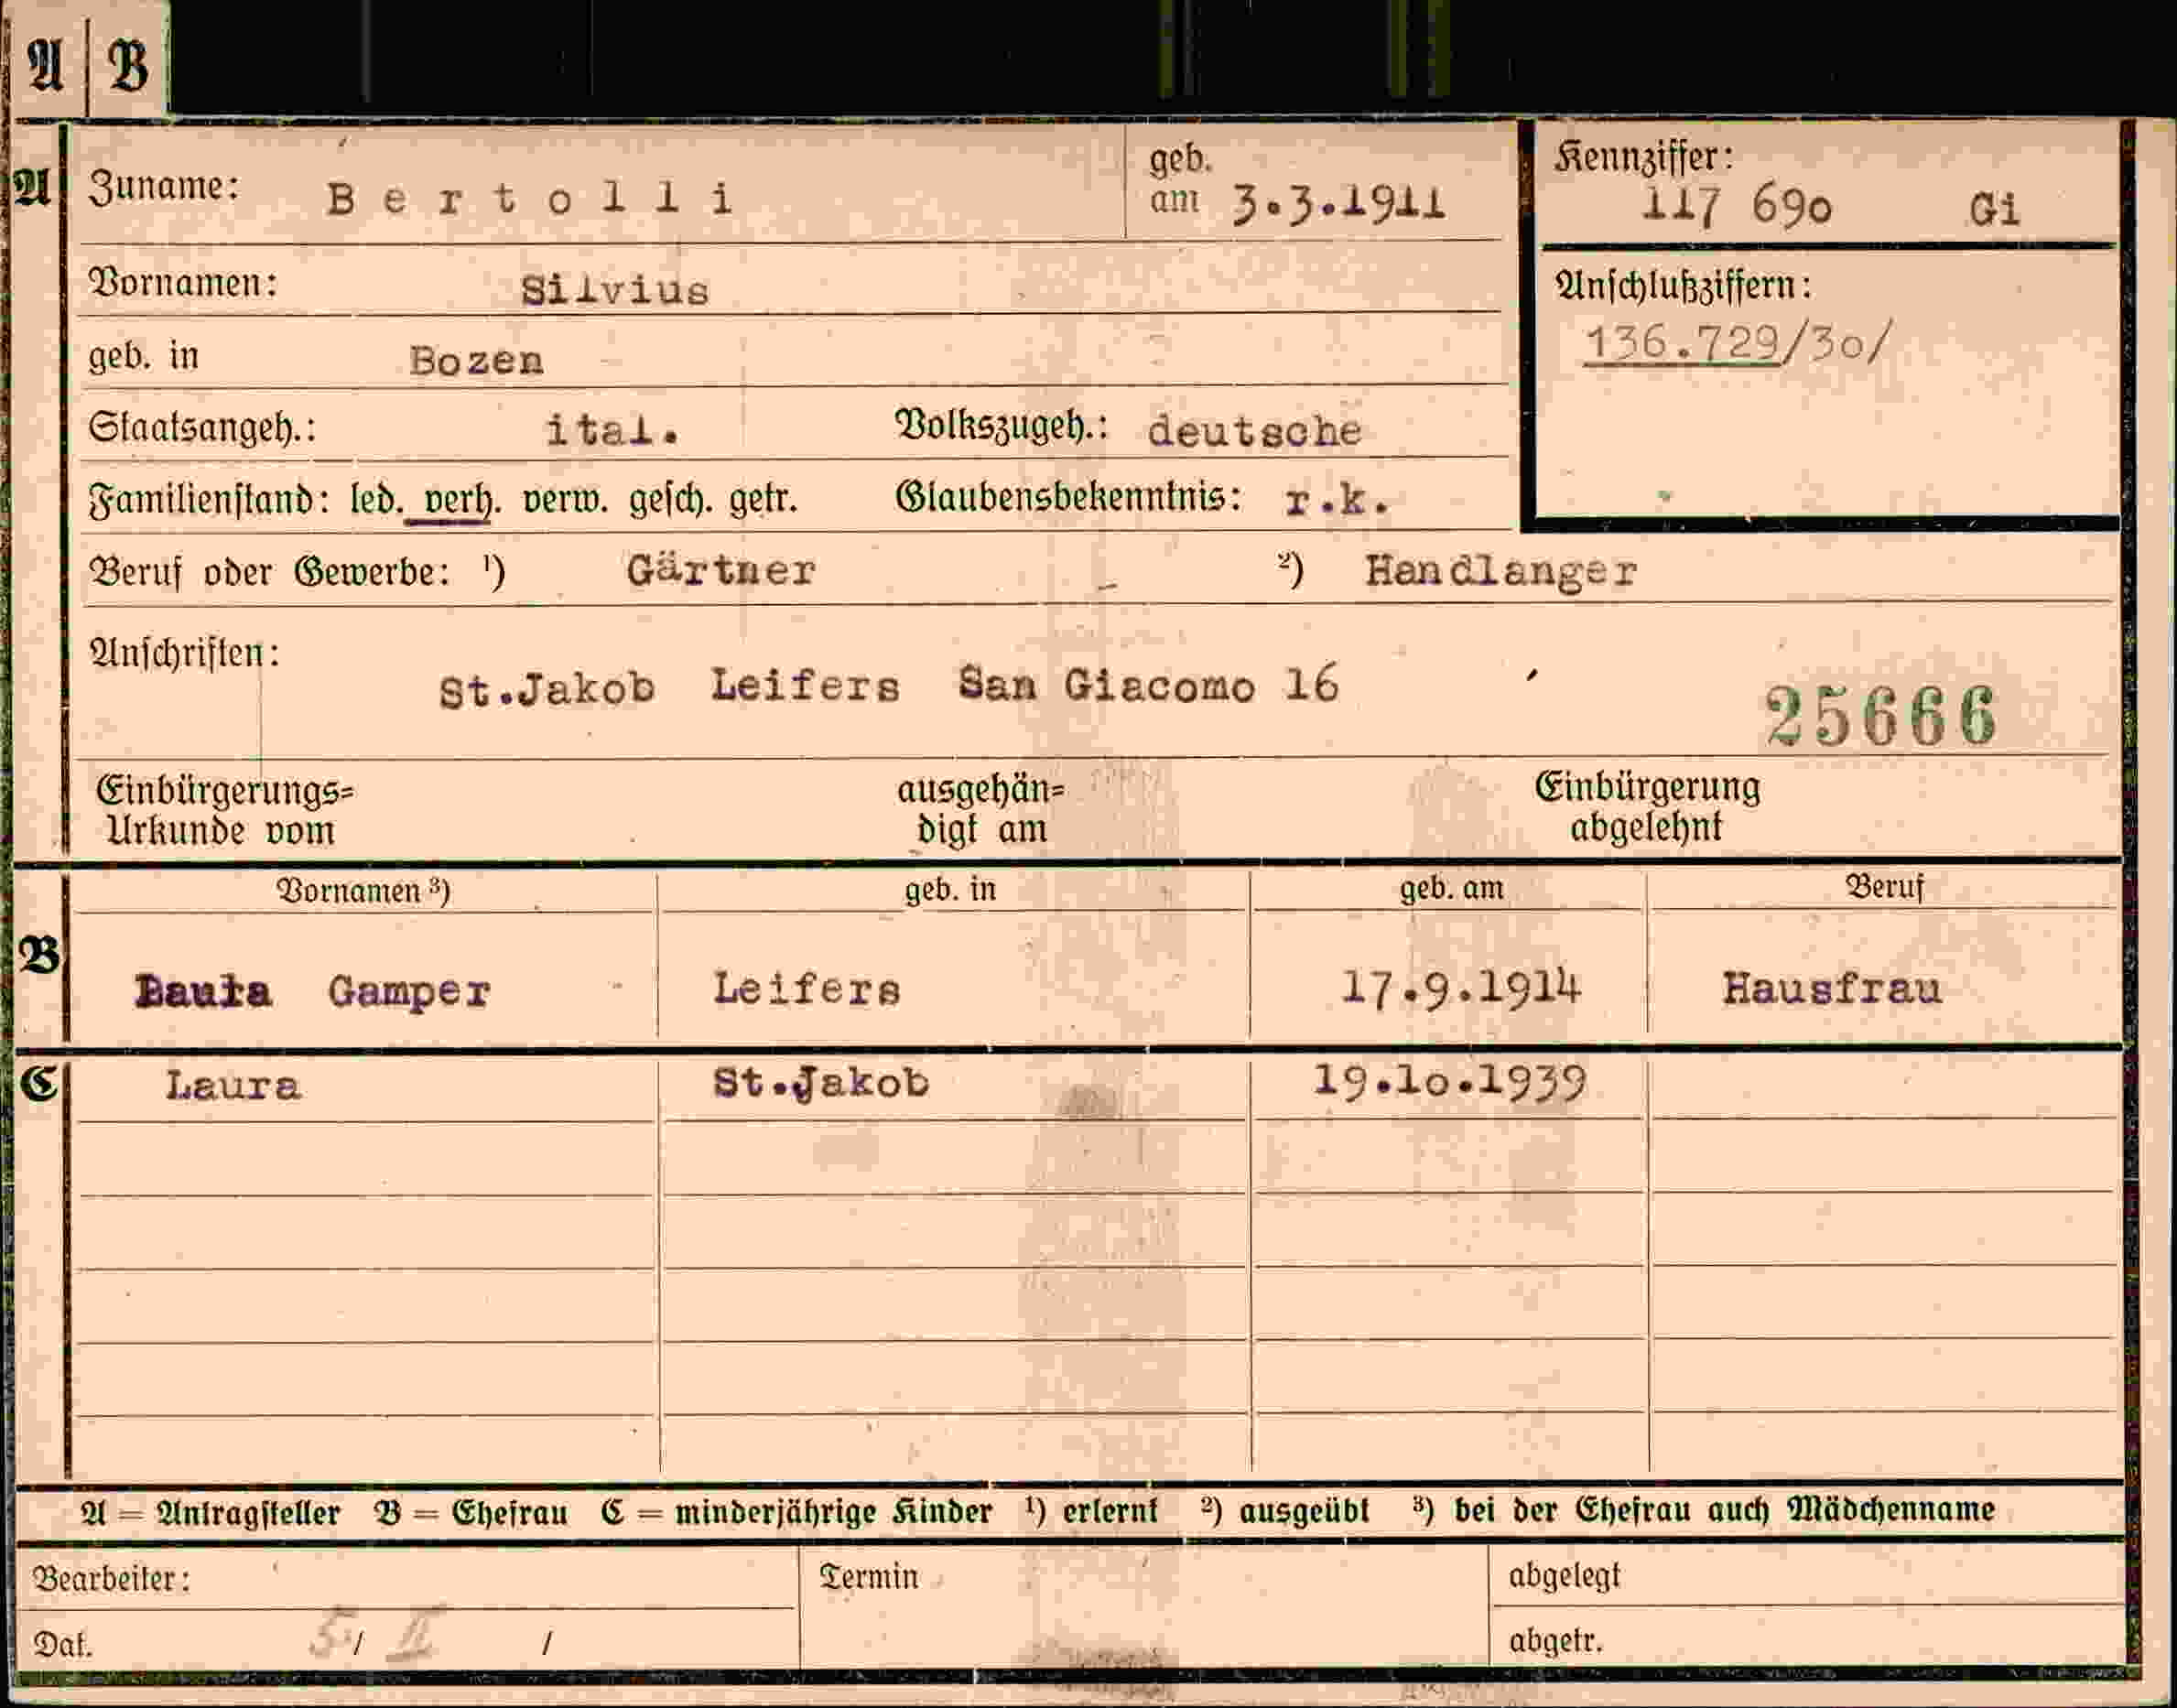 A B
A Zuname: Bertolli geb. am 3.3.1911
Kennziffer: 117 690 Gi
Vornamen: Silvius
Anschlußziffern:
136.729/30/
geb. in Bozen
Staatsangeh.: ital. Volkszugeh.: deutsche
Familienstand: led. verh. verw. gesch. getr. Glaubensbekenntnis: r.k.
Beruf oder Gewerbe: ¹) Gärtner ²) Handlanger
Anschriften:
St.Jakob Leifers San Giacomo 16
25666
Einbürgerungs= ausgehän= Einbürgerung
Urkunde vom digt am abgelehnt
Vornamen ³) geb. in geb. am Beruf
B Gamper Leifers 17.9.1914 Hausfrau
C Laura St.Jakob 19.10.1939
A = Antragsteller B = Ehefrau C = minderjährige Kinder ¹) erlernt ²) ausgeübt ³) bei der Ehefrau auch Mädchenname
Bearbeiter: Termin abgelegt
Dat. 5./ II / abgetr.